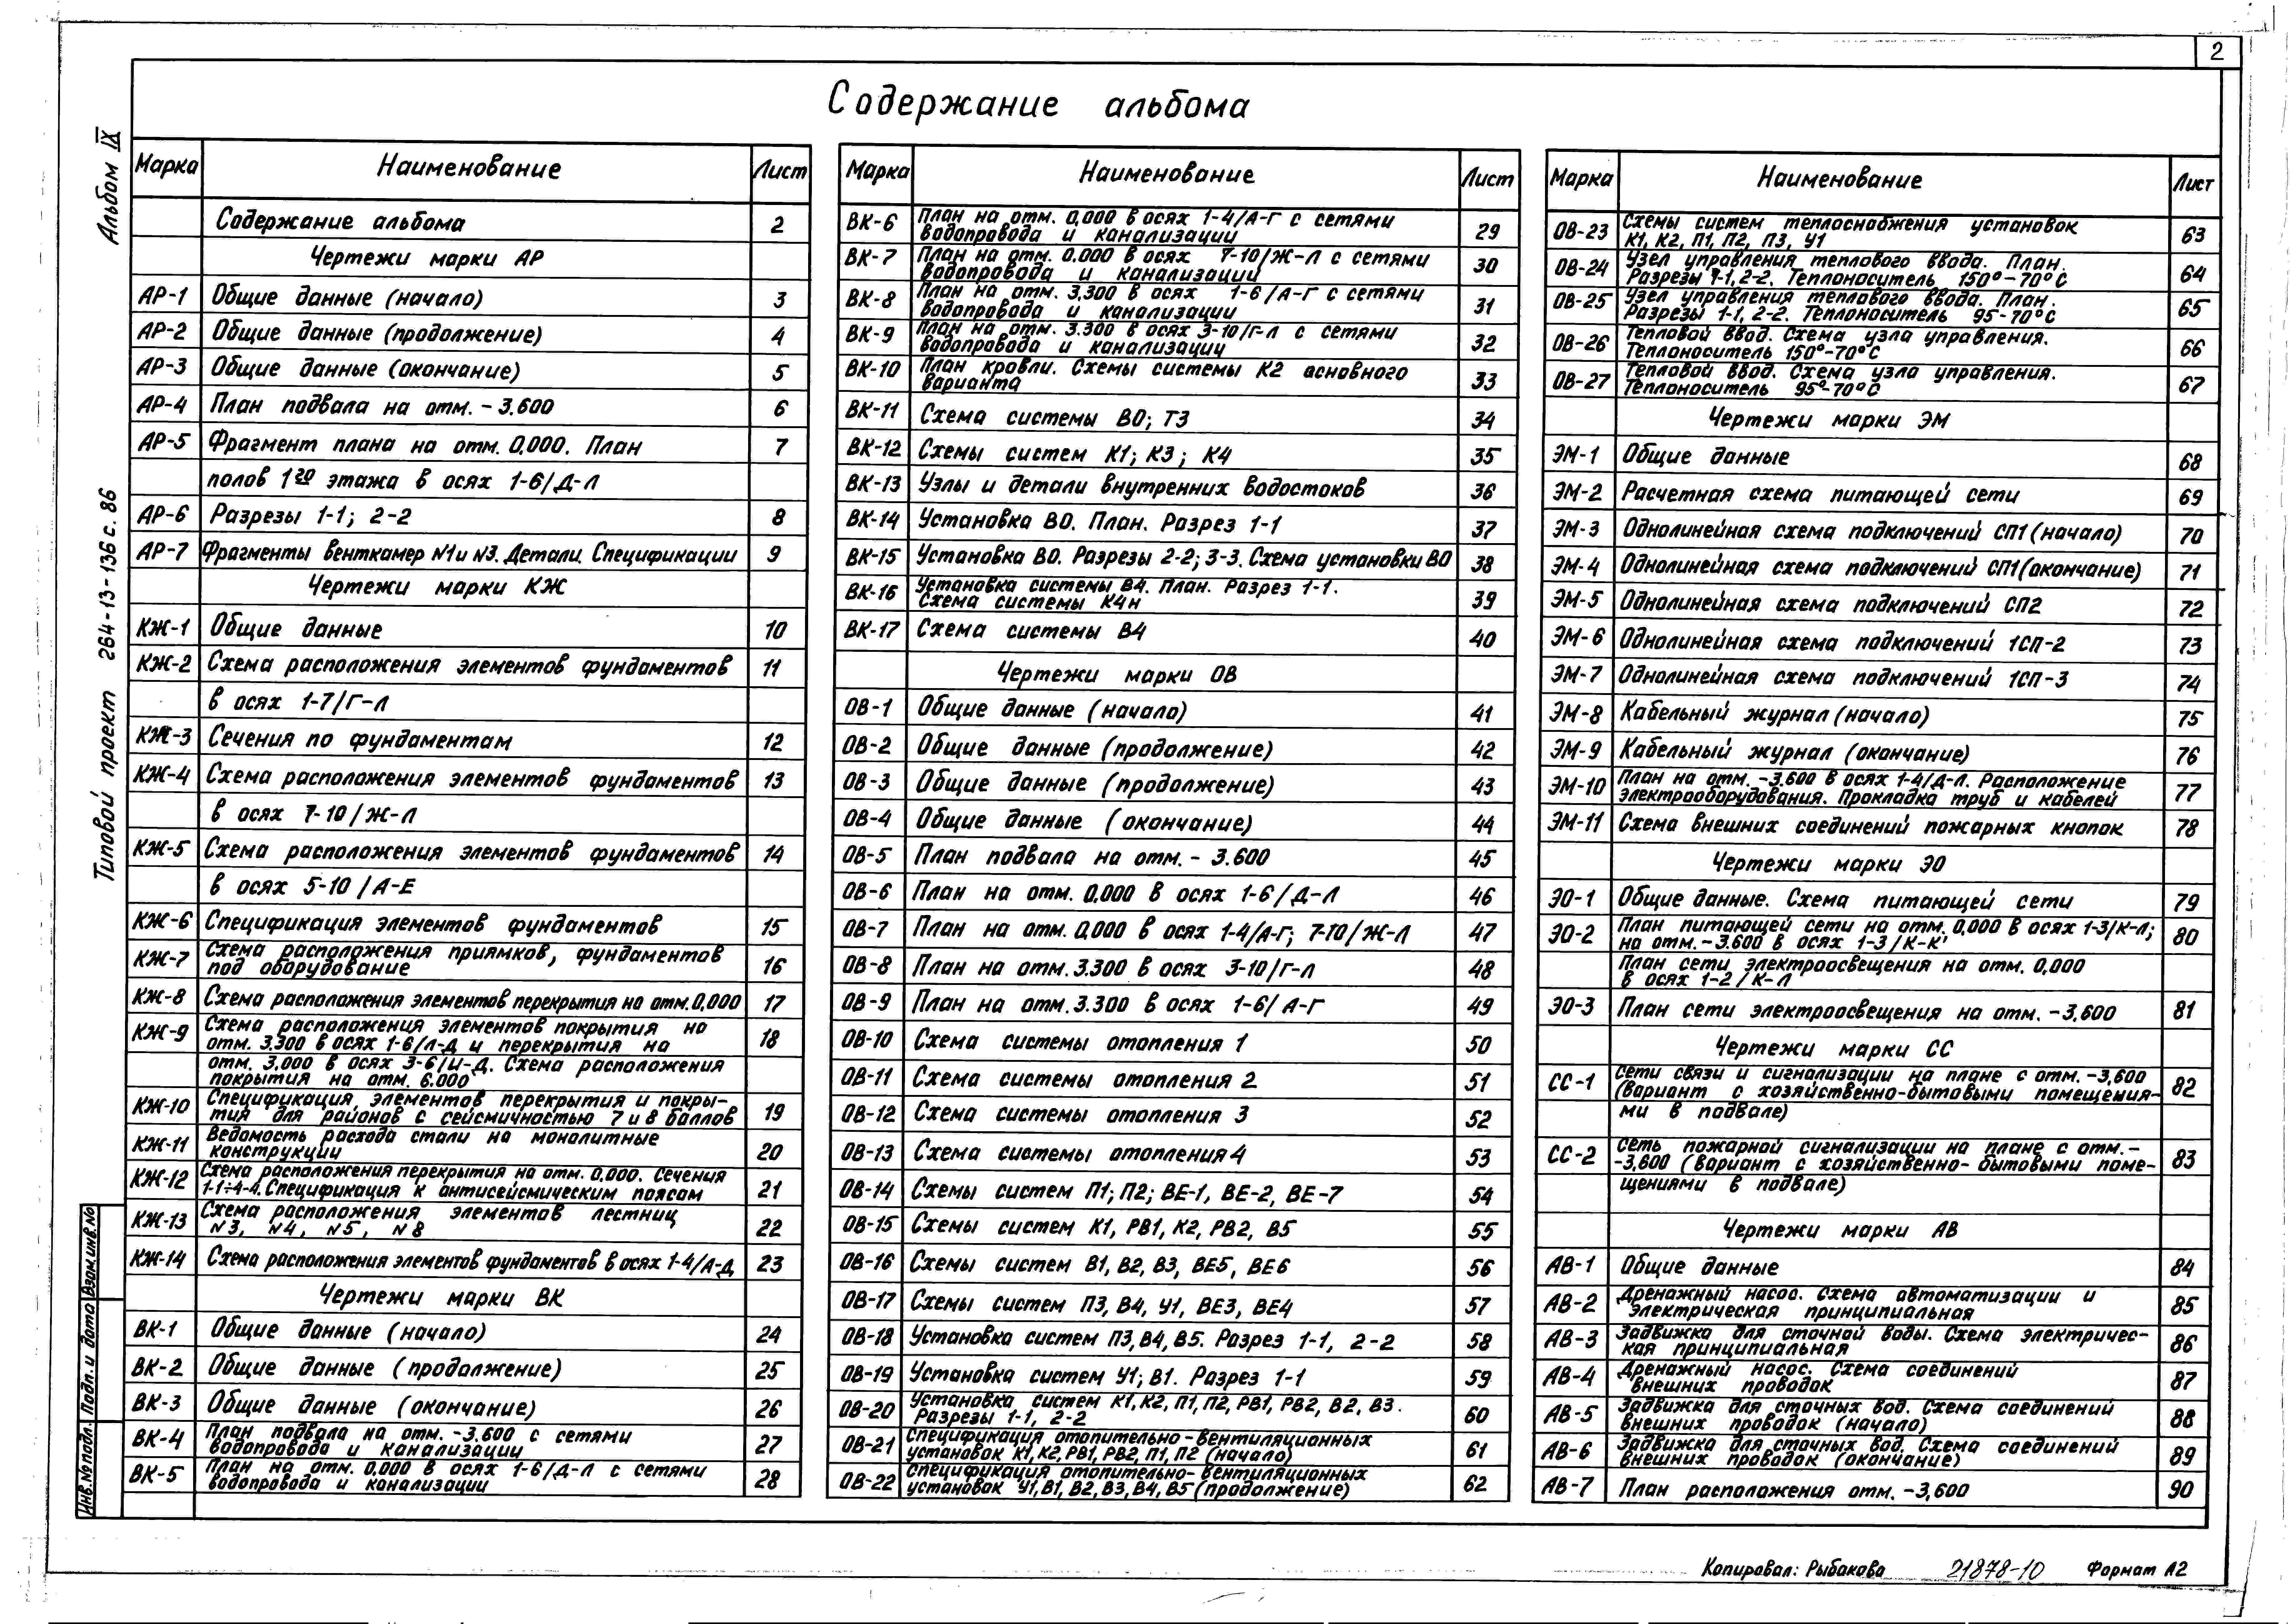 2
Содержание альбома
Альбом IX
Типовой проект 264-13-136 с. 86
Взам.инв.No
Подп. и дата
Инв.No подл.
Марка Наименование Лист
Содержание альбома 2
Чертежи марки АР
АР-1 Общие данные (начало) 3
АР-2 Общие данные (продолжение) 4
АР-3 Общие данные (окончание) 5
АР-4 План подвала на отм. -3.600 6
АР-5 Фрагмент плана на отм. 0.000. План 7
полов 1го этажа в осях 1-6/Д-Л
АР-6 Разрезы 1-1; 2-2 8
АР-7 Фрагменты венткамер N1 и N3. Детали. Спецификации 9
Чертежи марки КЖ
КЖ-1 Общие данные 10
КЖ-2 Схема расположения элементов фундаментов 11
в осях 1-7/Г-Л
КЖ-3 Сечения по фундаментам 12
КЖ-4 Схема расположения элементов фундаментов 13
в осях 7-10/Ж-Л
КЖ-5 Схема расположения элементов фундаментов 14
в осях 5-10/А-Е
КЖ-6 Спецификация элементов фундаментов 15
КЖ-7 Схема расположения приямков, фундаментов
под оборудование 16
КЖ-8 Схема расположения элементов перекрытия на отм. 0,000 17
КЖ-9 Схема расположения элементов покрытия на
отм. 3.300 в осях 1-6/Л-Д и перекрытия на 18
отм. 3.000 в осях 3-6/И-Д. Схема расположения
покрытия на отм. 6.000
КЖ-10 Спецификация элементов перекрытия и покры-
тия для районов с сейсмичностью 7 и 8 баллов 19
КЖ-11 Ведомость расхода стали на монолитные
конструкции 20
КЖ-12 Схема расположения перекрытия на отм. 0.000. Сечения
1-1÷4-4. Спецификация к антисейсмическим поясам 21
КЖ-13 Схема расположения элементов лестниц
N3, N4, N5, N8 22
КЖ-14 Схема расположения элементов фундаментов в осях 1-4/А-Д 23
Чертежи марки ВК
ВК-1 Общие данные (начало) 24
ВК-2 Общие данные (продолжение) 25
ВК-3 Общие данные (окончание) 26
ВК-4 План подвала на отм. -3.600 с сетями
водопровода и канализации 27
ВК-5 План на отм. 0.000 в осях 1-6/Д-Л с сетями
водопровода и канализации 28
Марка Наименование Лист
ВК-6 План на отм. 0,000 в осях 1-4/А-Г с сетями
водопровода и канализации 29
ВК-7 План на отм. 0.000 в осях 7-10/Ж-Л с сетями
водопровода и канализации 30
ВК-8 План на отм. 3,300 в осях 1-6/А-Г с сетями
водопровода и канализации 31
ВК-9 План на отм. 3.300 в осях 3-10/Г-Л с сетями
водопровода и канализации 32
ВК-10 План кровли. Схемы системы К2 основного
варианта 33
ВК-11 Схема системы В0; Т3 34
ВК-12 Схемы систем К1; К3; К4 35
ВК-13 Узлы и детали внутренних водостоков 36
ВК-14 Установка В0. План. Разрез 1-1 37
ВК-15 Установка В0. Разрезы 2-2; 3-3. Схема установки В0 38
ВК-16 Установка системы В4. План. Разрез 1-1.
Схема системы К4н 39
ВК-17 Схема системы В4 40
Чертежи марки ОВ
ОВ-1 Общие данные (начало) 41
ОВ-2 Общие данные (продолжение) 42
ОВ-3 Общие данные (продолжение) 43
ОВ-4 Общие данные (окончание) 44
ОВ-5 План подвала на отм. - 3.600 45
ОВ-6 План на отм. 0.000 в осях 1-6/Д-Л 46
ОВ-7 План на отм. 0.000 в осях 1-4/А-Г; 7-10/Ж-Л 47
ОВ-8 План на отм. 3.300 в осях 3-10/Г-Л 48
ОВ-9 План на отм. 3.300 в осях 1-6/А-Г 49
ОВ-10 Схема системы отопления 1 50
ОВ-11 Схема системы отопления 2 51
ОВ-12 Схема системы отопления 3 52
ОВ-13 Схема системы отопления 4 53
ОВ-14 Схемы систем П1; П2; ВЕ-1, ВЕ-2, ВЕ-7 54
ОВ-15 Схемы систем К1, РВ1, К2, РВ2, В5 55
ОВ-16 Схемы систем В1, В2, В3, ВЕ5, ВЕ6 56
ОВ-17 Схемы систем П3, В4, У1, ВЕ3, ВЕ4 57
ОВ-18 Установка систем П3, В4, В5. Разрез 1-1, 2-2 58
ОВ-19 Установка систем У1; В1. Разрез 1-1 59
ОВ-20 Установка систем К1, К2, П1, П2, РВ1, РВ2, В2, В3.
Разрезы 1-1, 2-2 60
ОВ-21 Спецификация отопительно-вентиляционных
установок К1, К2, РВ1, РВ2, П1, П2 (начало) 61
ОВ-22 Спецификация отопительно-вентиляционных
установок У1, В1, В2, В3, В4, В5 (продолжение) 62
Марка Наименование Лист
ОВ-23 Схемы систем теплоснабжения установок
К1, К2, П1, П2, П3, У1 63
ОВ-24 Узел управления теплового ввода. План.
Разрезы 1-1, 2-2. Теплоноситель 150°-70°С 64
ОВ-25 Узел управления теплового ввода. План.
Разрезы 1-1, 2-2. Теплоноситель 95-70°С 65
ОВ-26 Тепловой ввод. Схема узла управления.
Теплоноситель 150°-70°С 66
ОВ-27 Тепловой ввод. Схема узла управления.
Теплоноситель 95°-70°С 67
Чертежи марки ЭМ
ЭМ-1 Общие данные 68
ЭМ-2 Расчетная схема питающей сети 69
ЭМ-3 Однолинейная схема подключений СП1 (начало) 70
ЭМ-4 Однолинейная схема подключений СП1 (окончание) 71
ЭМ-5 Однолинейная схема подключений СП2 72
ЭМ-6 Однолинейная схема подключений 1СП-2 73
ЭМ-7 Однолинейная схема подключений 1СП-3 74
ЭМ-8 Кабельный журнал (начало) 75
ЭМ-9 Кабельный журнал (окончание) 76
ЭМ-10 План на отм. -3.600 в осях 1-4/Д-Л. Расположение
электрооборудования. Прокладка труб и кабелей 77
ЭМ-11 Схема внешних соединений пожарных кнопок 78
Чертежи марки ЭО
ЭО-1 Общие данные. Схема питающей сети 79
ЭО-2 План питающей сети на отм. 0,000 в осях 1-3/К-Л;
на отм. -3.600 в осях 1-3/К-К' 80
План сети электроосвещения на отм. 0,000
в осях 1-2/К-Л
ЭО-3 План сети электроосвещения на отм. -3,600 81
Чертежи марки СС
СС-1 Сети связи и сигнализации на плане с отм. -3,600
(вариант с хозяйственно-бытовыми помещения- 82
ми в подвале)
СС-2 Сеть пожарной сигнализации на плане с отм. -
-3,600 (вариант с хозяйственно-бытовыми поме- 83
щениями в подвале)
Чертежи марки АВ
АВ-1 Общие данные 84
АВ-2 Дренажный насос. Схема автоматизации и
электрическая принципиальная 85
АВ-3 Задвижка для сточной воды. Схема электричес-
кая принципиальная 86
АВ-4 Дренажный насос. Схема соединений
внешних проводок 87
АВ-5 Задвижка для сточных вод. Схема соединений
внешних проводок (начало) 88
АВ-6 Задвижка для сточных вод. Схема соединений
внешних проводок (окончание) 89
АВ-7 План расположения отм. -3,600 90
Копировал: Рыбакова 21878-10 Формат А2